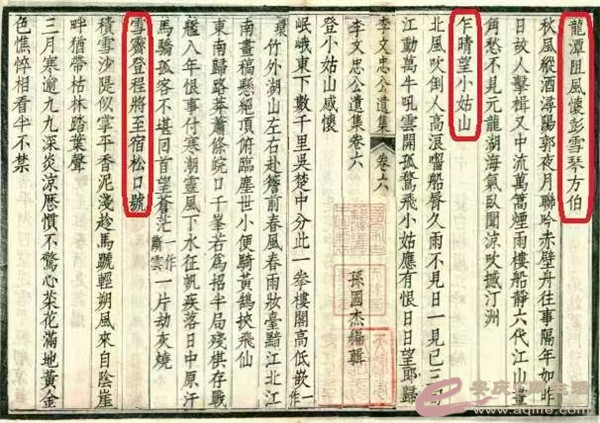 龍潭阻風懷彭雪琴方伯
秋風縱酒潯陽郭夜月聯吟赤壁舟往事隔年如昨
日故人擊楫又中流萬篙煙雨樓船靜六代江山畫
角愁不見元龍湖海氣臥聞涼吹撼汀洲
乍晴望小姑山
北風吹倒人高浪嚙船脣久雨不見日一見已三旬
江動萬牛吼雲開孤鶩飛小姑應有恨日日望郎歸
李文忠公遺集 卷六
李文忠公遺集卷六
孫國杰編輯
登小姑山感懷
岷峨東下數千里吳楚中分此一拳樓閣高低嵌一作
竹外湖山左右赴前春風春雨妝臺黯江北江
南畫稿懸絕頂俯臨塵世小便騎黃鶴挾飛仙
東南歸路莽蕭條皖口千峯若為招半局殘棋存戰
艦八年恨事付寒潮靈風下水征帆疾落日中原汗
馬驕孤客不堪回首望蒼茫一作蕭雲一片劫灰燒
雪霽登程將至宿松口號
積雪沙隄似掌平香泥淺趁馬蹏輕朔風來自陰崖
畔猶帶枯林踏葉聲
三月寒逾九九深炎涼歷慣不驚心菜花滿地黃金
色憔悴相看半不禁
www.aqlife.com